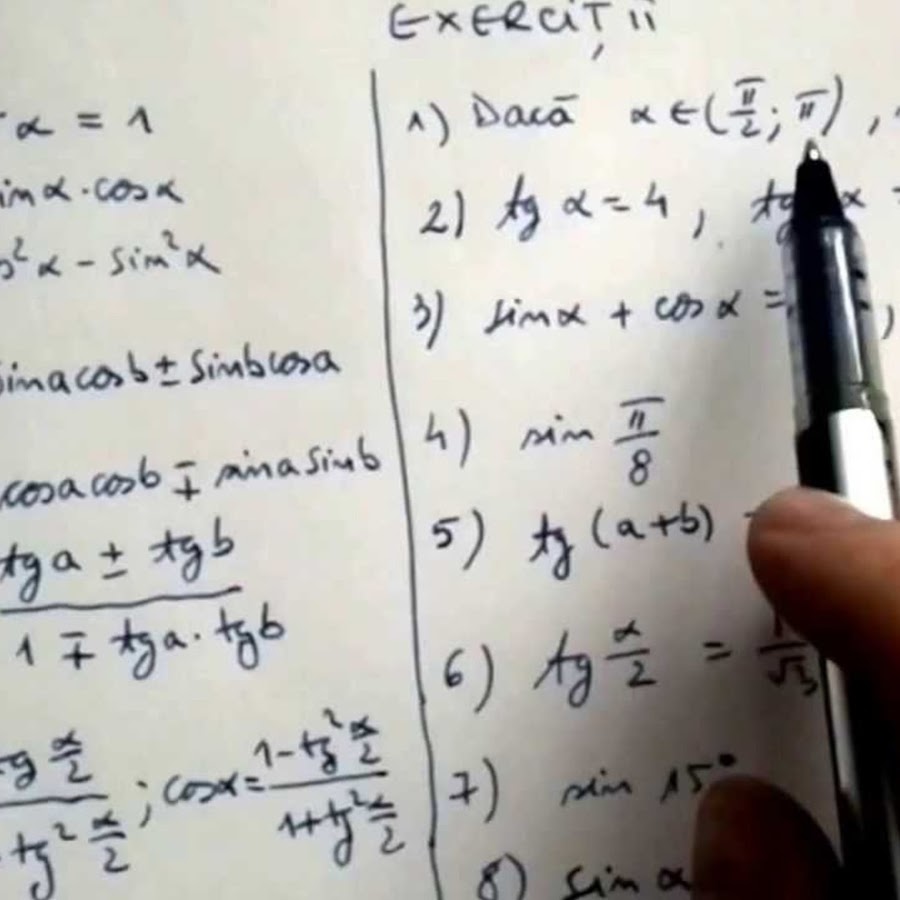 EXERCIȚII
α = 1
sinα · cosα
s²α - sin²α
sinacosb ± sinbcosa
cosacosb ∓ sinasinb
tga ± tgb
1 ∓ tga · tgb
tg α/2
tg² α/2
; cosα = (1 - tg² α/2)/(1 + tg² α/2)
1) Dacă α ∈ (π/2; π) ,
2) tg α = 4 , tg
3) sinα + cosα =
4) sin π/8
5) tg (a+b)
6) tg α/2 = 1/√3
7) sin 15°
8) sin α